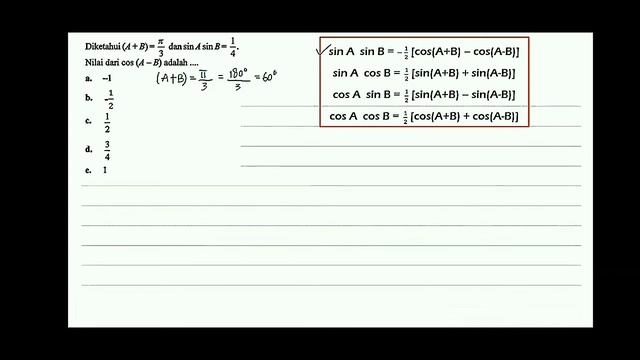 Diketahui (A + B) = π/3 dan sin A sin B = 1/4.
Nilai dari cos (A – B) adalah ....
a. –1
(A+B) = π/3 = 180°/3 = 60°
b. -1/2
c. 1/2
d. 3/4
e. 1
✓sin A sin B = -½ [cos(A+B) – cos(A-B)]
sin A cos B = ½ [sin(A+B) + sin(A-B)]
cos A sin B = ½ [sin(A+B) – sin(A-B)]
cos A cos B = ½ [cos(A+B) + cos(A-B)]